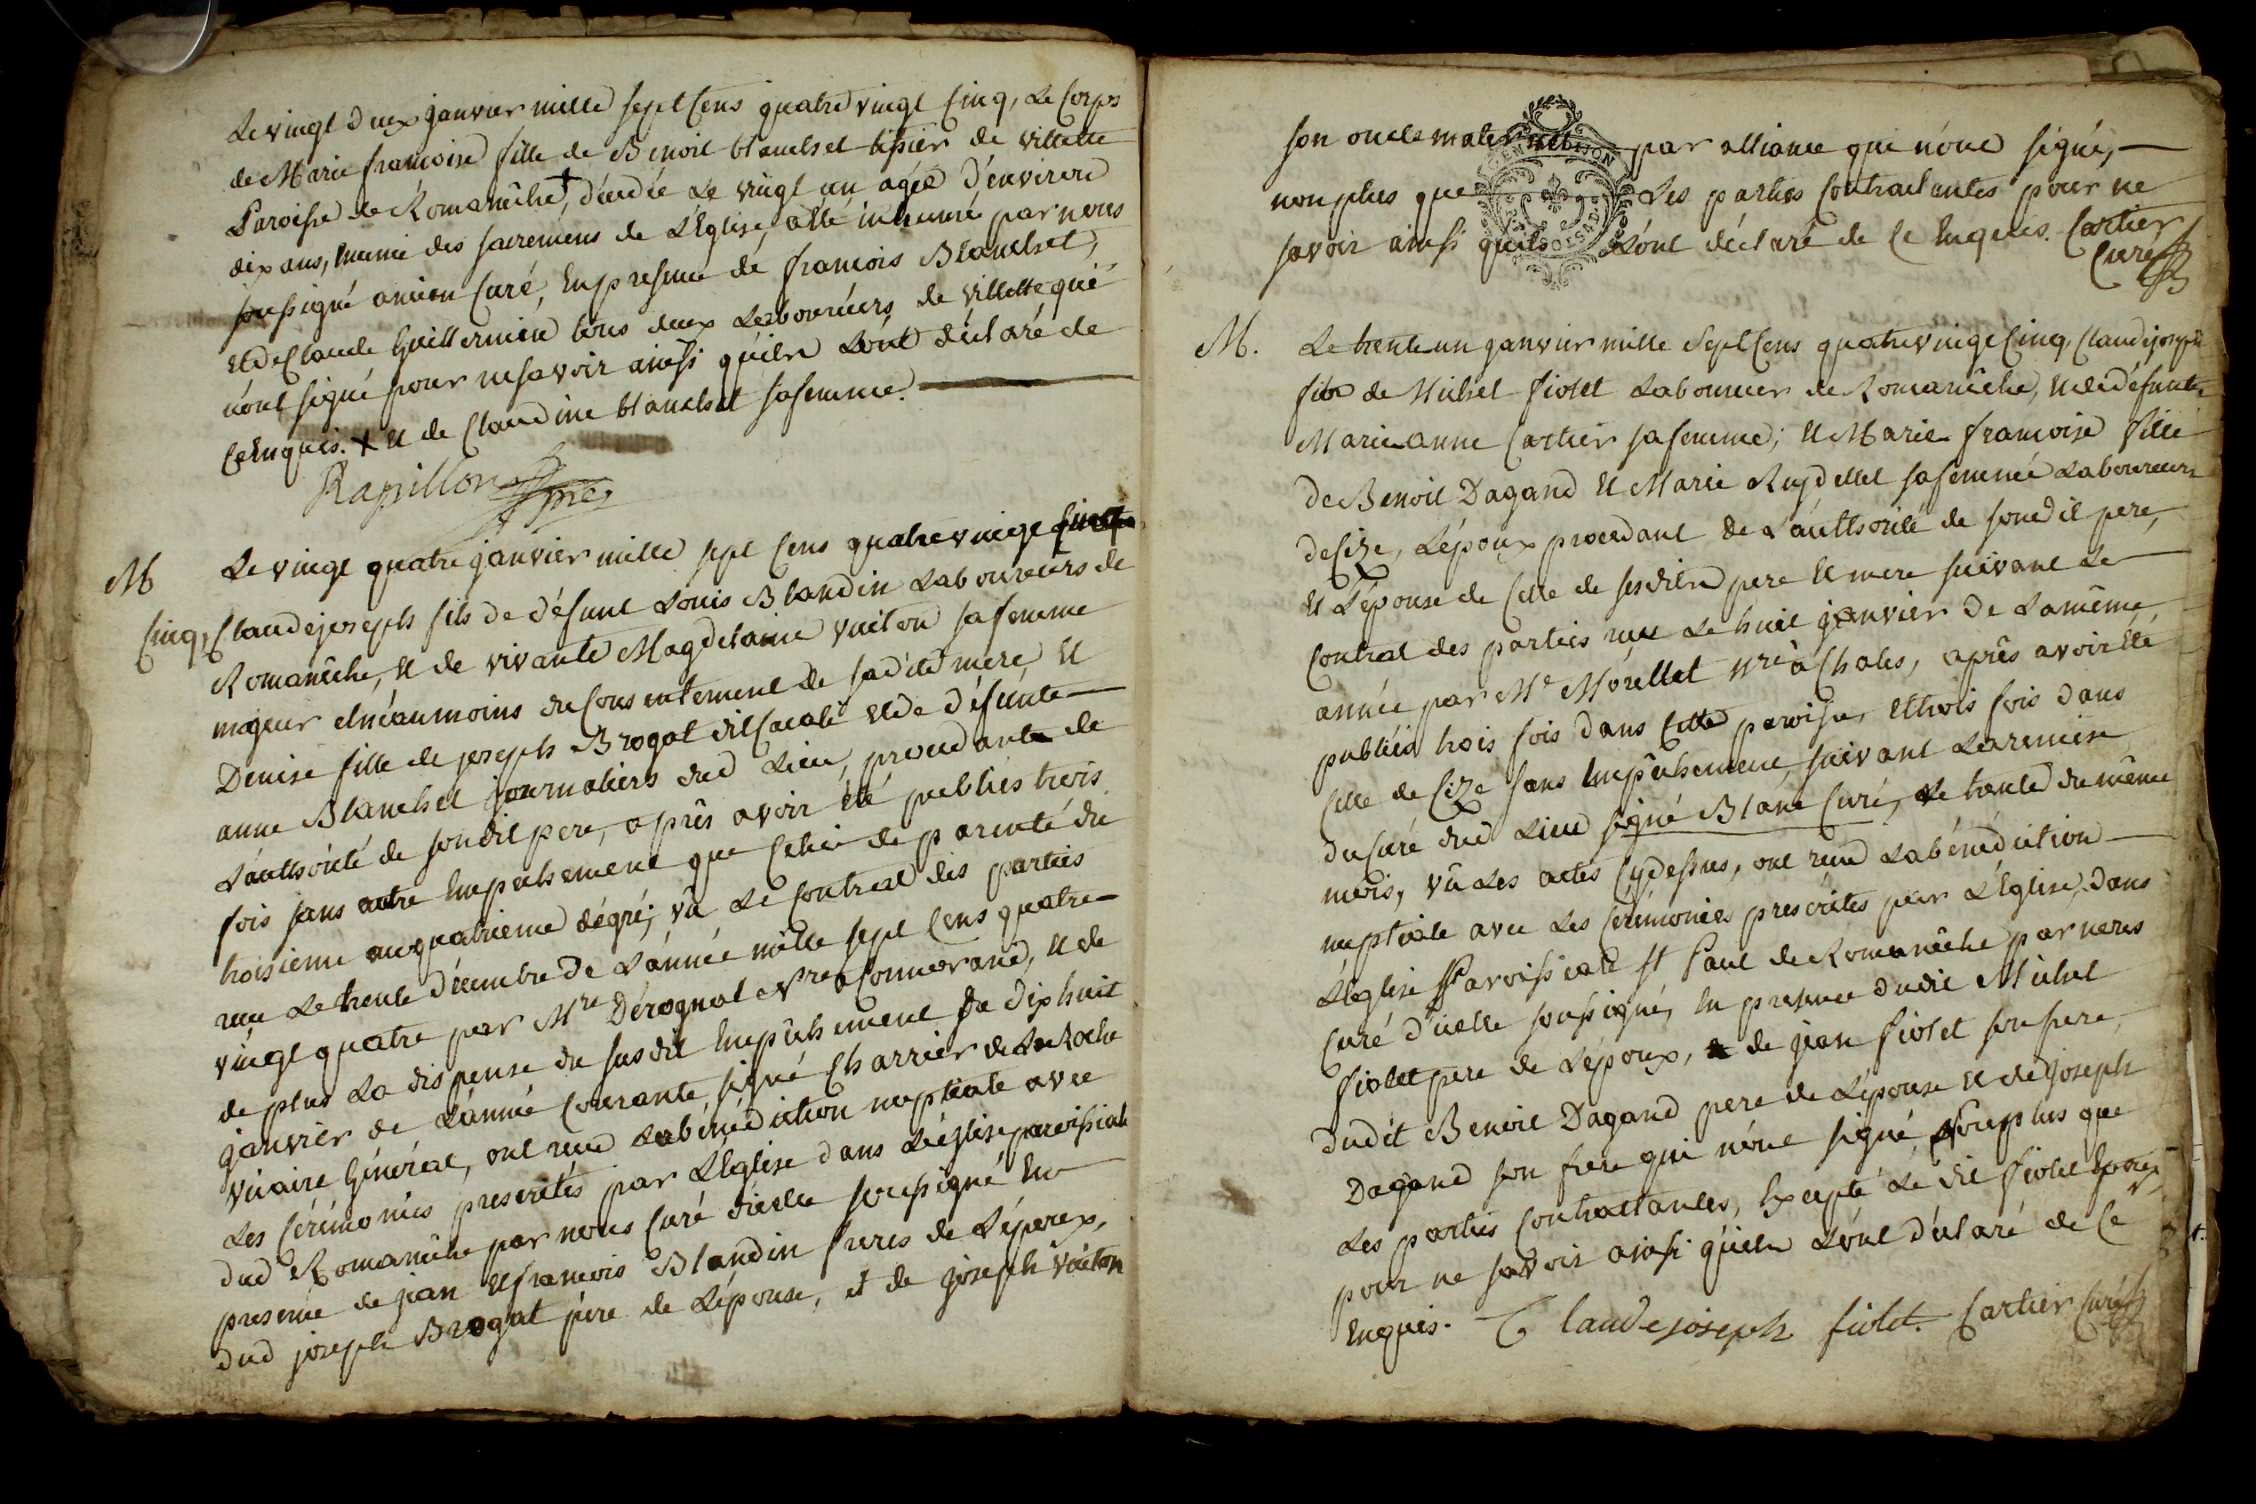 Le vingt deux janvier mille sept Cens quatre vingt Cinq, Le Corps
de Marie francoise fille de Benoit blanchet tissier de villette
Paroisse de Romanêche, + décédée Le vingt un agée d'environ
dix ans, munie des sacremens de L'Eglise, a été inhumé par nous
soussigné ancien Curé, En presence de francois Blanchet,
et de Claude Guillermin tous deux Laboureurs de villette qui
n'ont signé pour ne savoir ainsi qu'ils L'ont déclaré de
Ce Enquis. + et de Claudine blanchet sa femme.
Rapillon
M
Le vingt quatre janvier mille sept Cens quatre vingt
Cinq, Claude joseph fils de défunt Louis Blandin Laboureurs de
Romanêche, et de vivante Magdelaine vuiton sa femme
majeur et néanmoins du Consentement de sadite mere, et
Denise fille de joseph Brogat dit et de défunte
anne Blanchet journaliers dud Lieu, procedante de
L'authorité de sondit pere, après avoir été publiés trois
fois sans autre Empechement que Celui de parenté du
troisieme au quatrieme dégré; vû Le Contrat des parties
reçu Le trente décembre de L'année mille sept Cens quatre
vingt quatre par Mre Dérognat Nre a Conmerand, et de
de plus La dispense du susdit Empêchement Du dix huit
janvier de L'année Courante, signé Charrier de La Roche
vicaire Général, ont reçu La bénédiction nuptiale avec
Les Cérémonies prescrites par L'Eglise dans L'église paroissiale
dud Romanêche par nous Curé d'icelle soussigné En
presence de jean et francois Blandin freres de L'époux,
dud joseph Brogat pere de L'épouse, et de joseph vuiton
son oncle maternel par alliance qui n'ont signé,
non plus que Les parties Contractantes pour ne
savoir ainsi qu'ils L'ont déclaré de Ce Enquis. Cartier
Curé
M.
Le trente un janvier mille Sept Cens quatre vingt Cinq, Claude joseph
fils de Michel fiolet Laboureur de Romanêche, et de défunte
Marie anne Cartier sa femme; et Marie francoise fille
de Benoit Dagand et Marie Ruydellet sa femme Laboureurs
de Cize, L'époux procedant de L'authorité de sondit pere,
et L'épouse de Celle de sesdits pere et mere suivant Le
Contrat des parties reçu Le huit janvier de La même
année par Me Morellet Nre à Chales, après avoir été
publiés trois fois dans Cette paroisse, et trois fois dans
Celle de Cize sans Empêchement, suivant La remise
du Curé dud Lieu signé Blanc Curé, Le trente du même
mois, vû Les actes Cydessus, ont reçu La bénédiction
nuptiale avec Les Cérémonies prescrites par L'Eglise, dans
L'Eglise Paroissiale St Paul de Romanêche par nous
Curé d'icelle soussigné, En presence dudit Michel
fiolet pere de L'époux, de jean fiolet son frere,
dudit Benoit Dagand pere de L'épouse et de joseph
Dagand son frere qui n'ont signé Nonplus que
Les parties Contractantes, Excepté Le dit fiolet Epoux,
pour ne savoir ainsi qu'ils L'ont déclaré de Ce
Enquis. Claude joseph fiolet. Cartier Curé